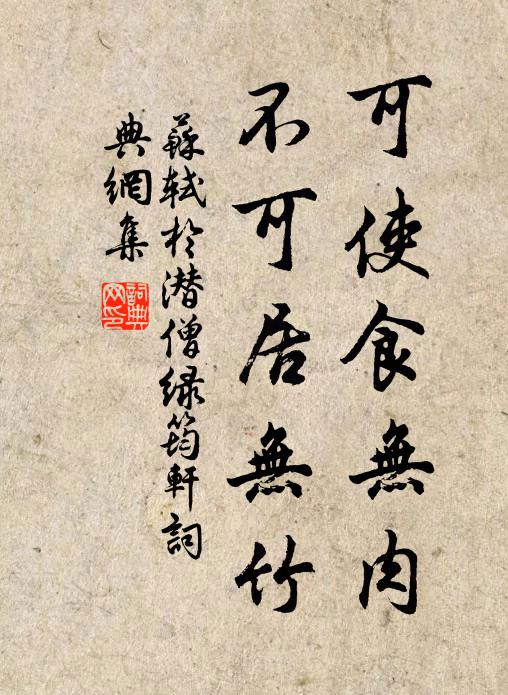 可使食無肉
不可居無竹
蘇軾於潛僧綠筠軒詞
典網集
詞典網印